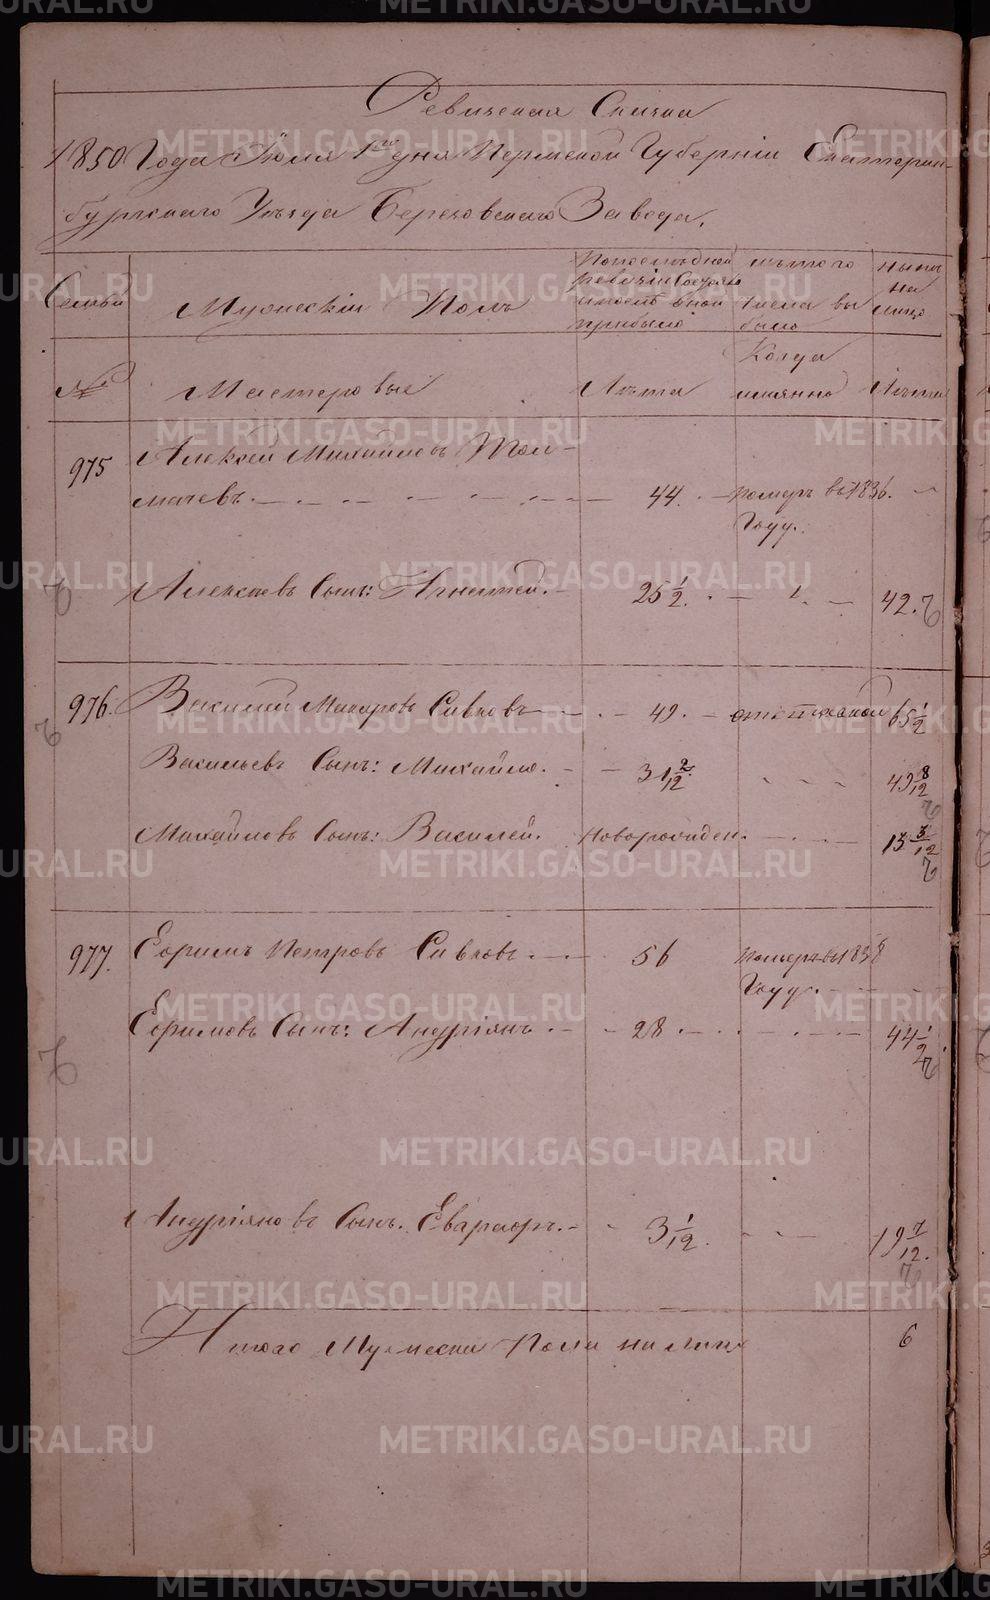 METRIKI.GASO-URAL.RU
Ревизская Сказка
1850 Года Июля 1го дня Пермской Губернiи Екатерин-
бургскаго Уѣзда Березовскаго Завода.
Семьи
Мужескiй Полъ
По последней ревизiи Состояло и после оной прибыло
изъ того числа выбыло
ныне на лицо
№
Мастеровые
Лѣта
Когда имянно
Лѣта
975 Алексей Михайловъ Тол-
мачевъ. 44. померъ въ 1836.
Году.
Алексеевъ Сынъ: Игнатей. 25 1/2. 42.
976. Василей Макаровъ Сивковъ 49. 65 1/2
Васильевъ Сынъ: Михайло. 31 2/12. 49 8/12
Михайловъ Сынъ: Василей. Новорожден. 13 3/12
977. Ефимъ Петровъ Сивковъ 56 померъ въ 1838
Году.
Ефимовъ Сынъ: Андрiянъ. 28 44 1/2.
Андрiяновъ Сынъ. Евграфъ. 3 1/12. 19 7/12.
Итого Мужеска Пола на лицо 6